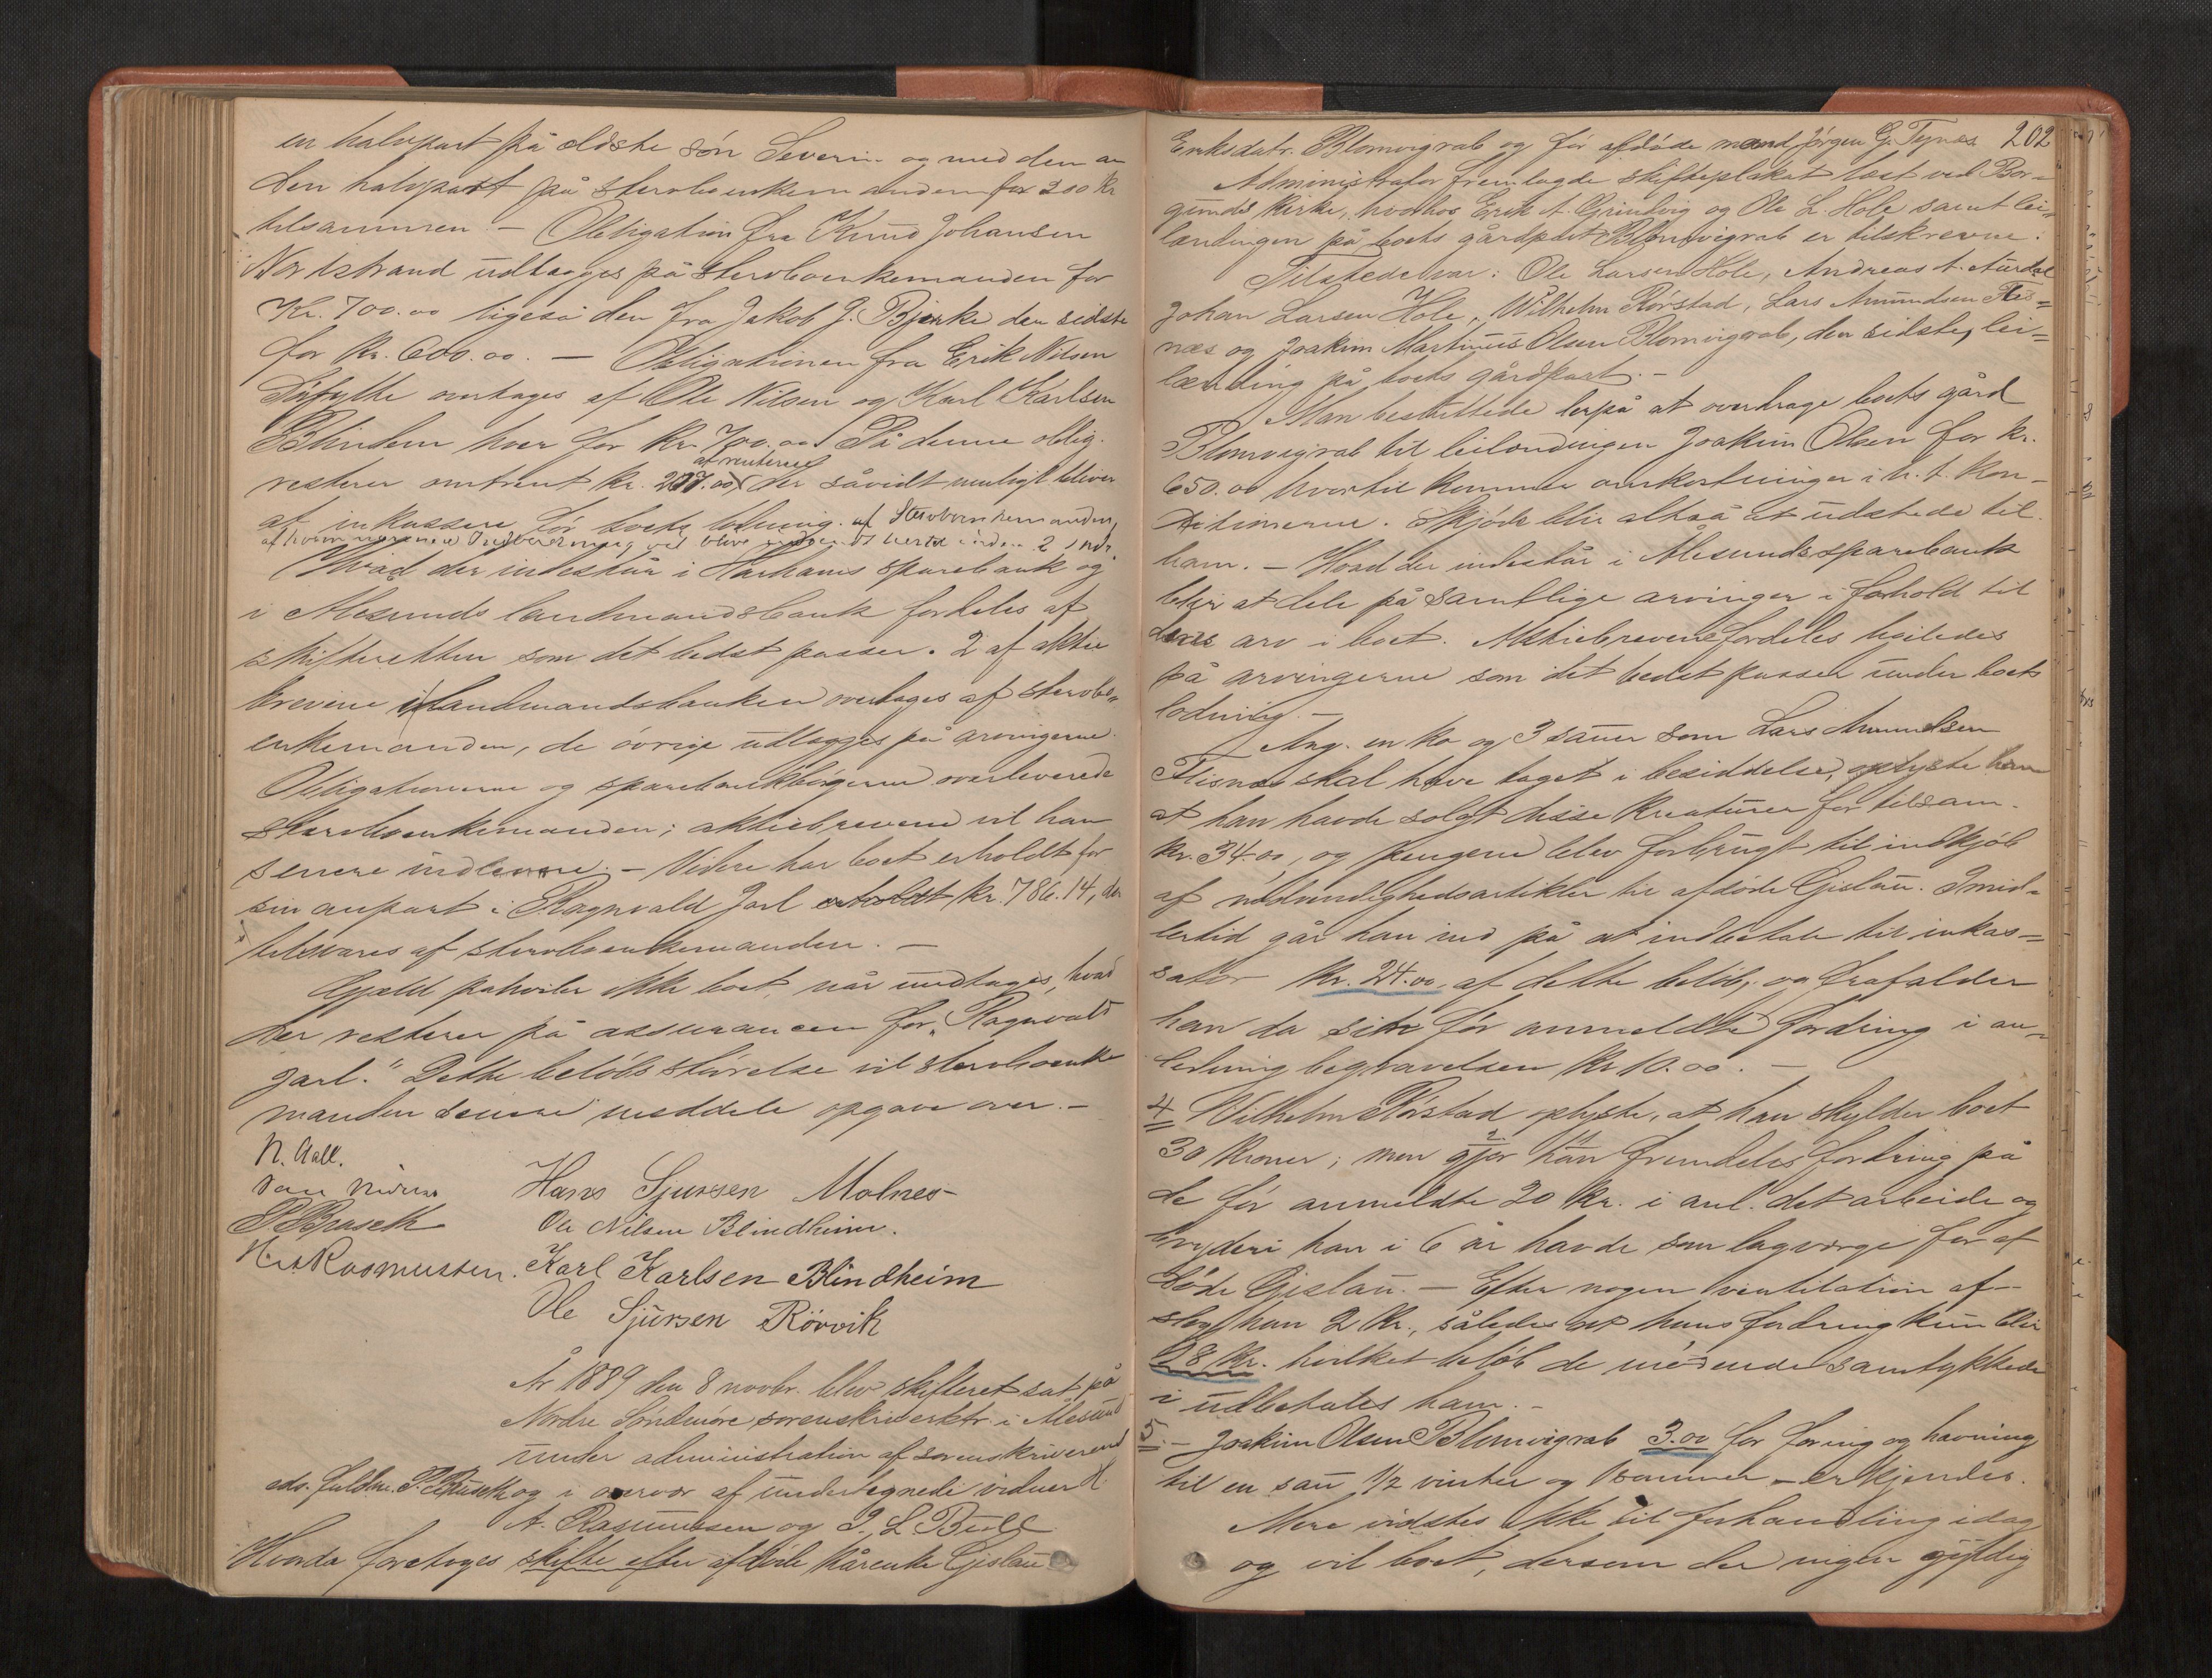 en halvpart på ældste søn Severin og med den an
den halvpart på stervboenkemanden for 200 kr
tilsammen. – Obligation fra Knud Johansen
Nordstrand udlægges på stervboenkemanden for
Kr. 700.00 ligeså den fra Jakob J. Bjerke den sidste
for kr. 600.00. – Obligationen fra Erik Nilsen
overtages af Ole Nilsen og Karl Karlsen
Blindem hver for kr. 700.00. På denne oblig.
af renterne
resterer omtrent kr. 207.00, der såvidt muligt bliver
at inkassere før boets lodning af Stervboenkemanden,
af hvem nærmere Indberetning vil blive inden 2 mdr.
Hvad der indestår i Harhams sparebank og
i Alesunds landmandsbank fordeles af
skifteretten som det bedst passer. 2 af aktie
brevene i Landmandsbanken overtages af stervbo-
enkemanden, de øvrige udlægges på arvingerne.
Obligationerne og sparebankbøgerne overleverede
stervboenkemanden; aktiebrevene vil han
senere indlevere. – Videre har boet erholdt for
sin anpart i Ragnvald Jarl erholdt kr. 786.14, der
tilsvares af stervboenkemanden. –
Gjæld påhviler ikke boet, når undtages, hvad
der resterer på assurancen for „Ragnvald
Jarl." Dette beløbs størrelse vil stervboenke
manden senere meddele opgave over. –
N. Aall.
P. Busch
Hans Sjursen Molnes
Ole Nilsen Blindheim.
H. A. Rasmussen. Karl Karlsen Blindheim
Ole Sjursen Rörvik
År 1889 den 8 novbr. blev skifteret sat på
Nordre Søndmøre sorenskriverktr. i Ålesund
under administration af sorenskriverens
eds. fuldm. P. Busch og i overvær af undertegnede vidner H.
A. Rasmussen og J. L. Bull
Hvorda foretoges skifte efter afdøde kårenke Gislau
202
Eriksdatr. Blomvigrab og før afdøde mand Jørgen G. Tynes
Administrator fremlagde skifteplakat læst ved Bor-
gunds kirke, hvorhos Erik A. Grindvig og Ole L. Hole samt lei-
lændingen på boets gårdpart Blomvigrab er tilskrevne.
Tilstede var: Ole Larsen Hole, Andreas A. Aurdal
Johan Larsen Hole, Wilhelm Rørstad, Lars Amundsen Flis=
næs og Joakim Martinus Olsen Blomvigrab, den sidste, lei=
lænding på boets gårdpart. –
Man besluttede herpå at overdrage boets gård
Blomvigrab til leilændingen Joakim Olsen for kr.
650.00 hvortil kommer omkostninger i h. t. kon-
ditionerne. Skjøde blir altså at udstede til
ham. – Hvad der indestår i Ålesunds sparebank
blir at dele på samtlige arvinger i forhold til
deres arv i boet. Aktiebrevene fordeles ligeledes
på arvingerne som det bedst passer under boets
lodning. –
Ang. en ko og 3 sauer som Lars Amundsen
Flisnes skal have taget i besiddelse, oplyste han
at han havde solgt disse kreaturer for tilsam.
kr. 34.00, og pengene blev forbrugt til indkjøb
af nødvendighedsartikler til afdøde Gislau. Imid-
lertid går han ind på at indbetale til inkas=
sator kr. 24.00 af dette beløb, og frafalder
han da sin før anmeldte fordring i an-
ledning begravelsen kr 10.00. –
4 Vilhelm Rørstad oplyste, at han skylder boet
30 kroner; men gjør han fremdeles fordring på
de før anmeldte 20 kr. i anl. det arbeide og
bryderi han i 6 år havde som lagværge for af
døde Gislau. – Efter nogen ventilation af-
slog han 2 kr., således at hans fordring kun blir
18 kr. hvilket beløb de mødende samtykkede
i udbetales ham. –
5 – Joakim Olsen Blomvigrab 3.00 for foring og havning
til en sau 1/2 vinter og 1 sommer – erkjendes.
Mere vidstes ikke til forhandling idag
og vil boet, dersom der ingen gyldig